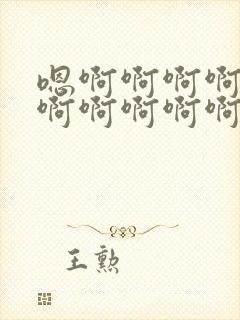 嗯啊啊啊啊
啊啊啊啊啊
王勲